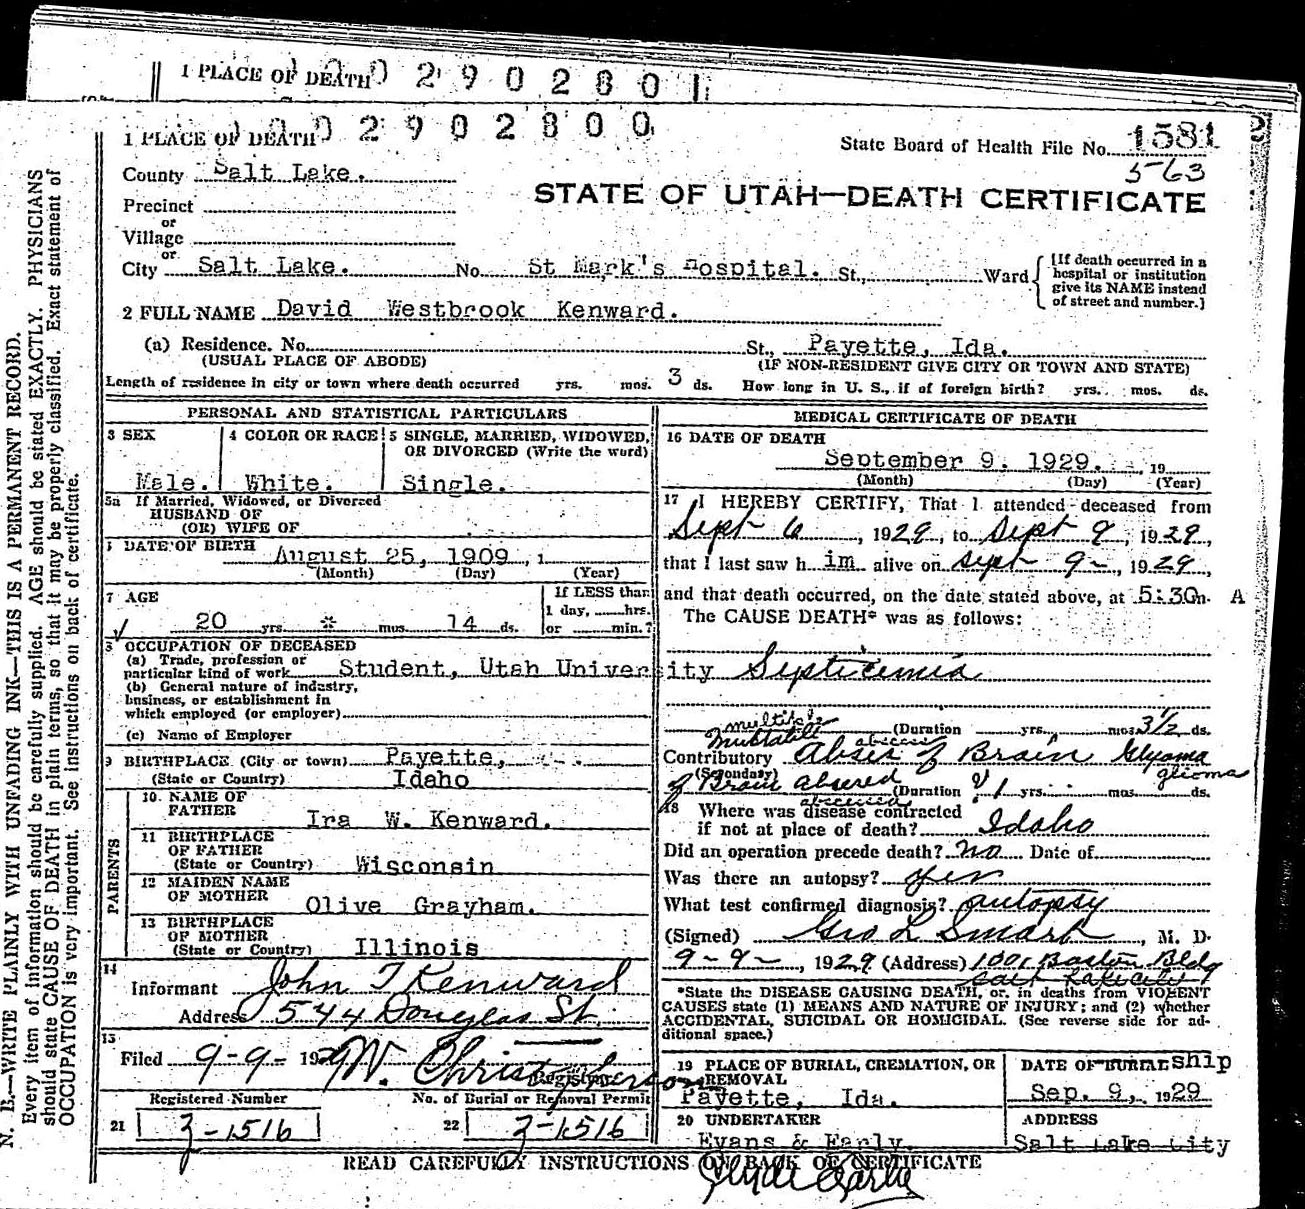 1 PLACE OF DEATH 0 2 9 0 2 8 0 1
1 PLACE OF DEATH 0 0 2 9 0 2 8 0 0
State Board of Health File No. 1581
563
County Salt Lake.
STATE OF UTAH—DEATH CERTIFICATE
Precinct
or
Village
or
City Salt Lake. No. St Mark's Hospital. St., Ward
[If death occurred in a
hospital or institution
give its NAME instead
of street and number.]
2 FULL NAME David Westbrook Kenward.
(a) Residence. No. St., Payette, Ida.
(USUAL PLACE OF ABODE) (IF NON-RESIDENT GIVE CITY OR TOWN AND STATE)
Length of residence in city or town where death occurred yrs. mos. 3 ds. How long in U. S., if of foreign birth? yrs. mos. ds.
PERSONAL AND STATISTICAL PARTICULARS
3 SEX 4 COLOR OR RACE 5 SINGLE, MARRIED, WIDOWED,
OR DIVORCED (Write the word)
Male. White. Single.
5a If Married, Widowed, or Divorced
HUSBAND OF
(OR) WIFE OF
DATE OF BIRTH August 25, 1909, 1
(Month) (Day) (Year)
7 AGE If LESS than
1 day, hrs.
20 yrs. * mos. 14 ds. or min.?
8 OCCUPATION OF DECEASED
(a) Trade, profession or
particular kind of work Student, Utah University
(b) General nature of industry,
business, or establishment in
which employed (or employer)
(c) Name of Employer
9 BIRTHPLACE (City or town) Payette,
(State or Country) Idaho
PARENTS
10 NAME OF
FATHER Ira W. Kenward.
11 BIRTHPLACE
OF FATHER
(State or Country) Wisconsin
12 MAIDEN NAME
OF MOTHER Olive Grayham.
13 BIRTHPLACE
OF MOTHER
(State or Country) Illinois
14
Informant John T Kenward
Address 544 Douglas St.
15
Filed 9-9- 1929 W. Christopherson
Registrar
Registered Number No. of Burial or Removal Permit
21 Z-1516 22 Z-1516
MEDICAL CERTIFICATE OF DEATH
16 DATE OF DEATH
September 9. 1929. 19
(Month) (Day) (Year)
17 I HEREBY CERTIFY, That I attended deceased from
Sept 6, 1929, to Sept 9, 1929,
that I last saw h im alive on Sept 9-, 1929,
and that death occurred, on the date stated above, at 5:30 m. A
The CAUSE DEATH* was as follows:
Septicemia
multiple
(Duration yrs. mos 3½ ds.
abscess
Contributory Abses of Brain Glyoma
(Secondary) glioma
of Brain absered (Duration 1 yrs. mos. ds.
abscessed
18 Where was disease contracted
if not at place of death? Idaho
Did an operation precede death? no Date of
Was there an autopsy? yes
What test confirmed diagnosis? autopsy
(Signed) Geo L Smart, M. D.
9-9-, 1929 (Address) 1001 Boston Bldg
Salt Lake City
*State the DISEASE CAUSING DEATH, or, in deaths from VIOLENT
CAUSES state (1) MEANS AND NATURE OF INJURY; and (2) whether
ACCIDENTAL, SUICIDAL OR HOMICIDAL. (See reverse side for ad-
ditional space.)
19 PLACE OF BURIAL, CREMATION, OR
REMOVAL
Payette, Ida.
DATE OF BURIAL Ship
Sep. 9, 1929
20 UNDERTAKER ADDRESS
Evans & Early. Salt Lake City
READ CAREFULLY INSTRUCTIONS ON BACK OF CERTIFICATE
N. B.—WRITE PLAINLY WITH UNFADING INK—THIS IS A PERMANENT RECORD.
Every item of information should be carefully supplied. AGE should be stated EXACTLY. PHYSICIANS
should state CAUSE OF DEATH in plain terms, so that it may be properly classified. Exact statement of
OCCUPATION is very important. See instructions on back of certificate.